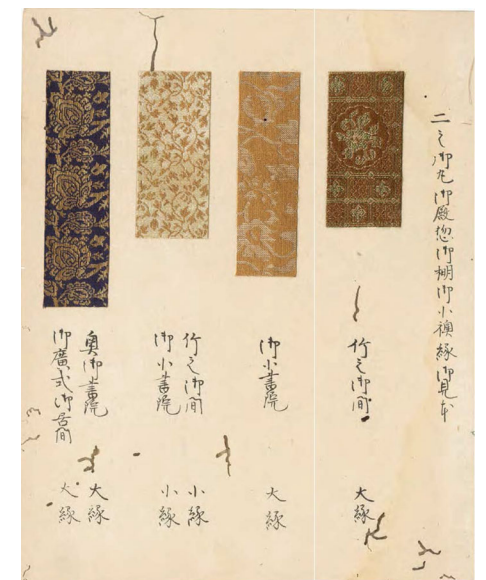 二之御丸御殿惣御棚御小襖縁御見本
竹之御間 大縁
御小書院 大縁
竹之御間 小縁
御小書院 小縁
奥御書院 大縁
御廣式御居間 大縁